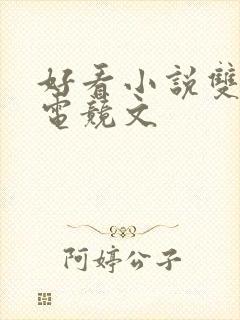 好看小說雙
電競文
阿婷公子